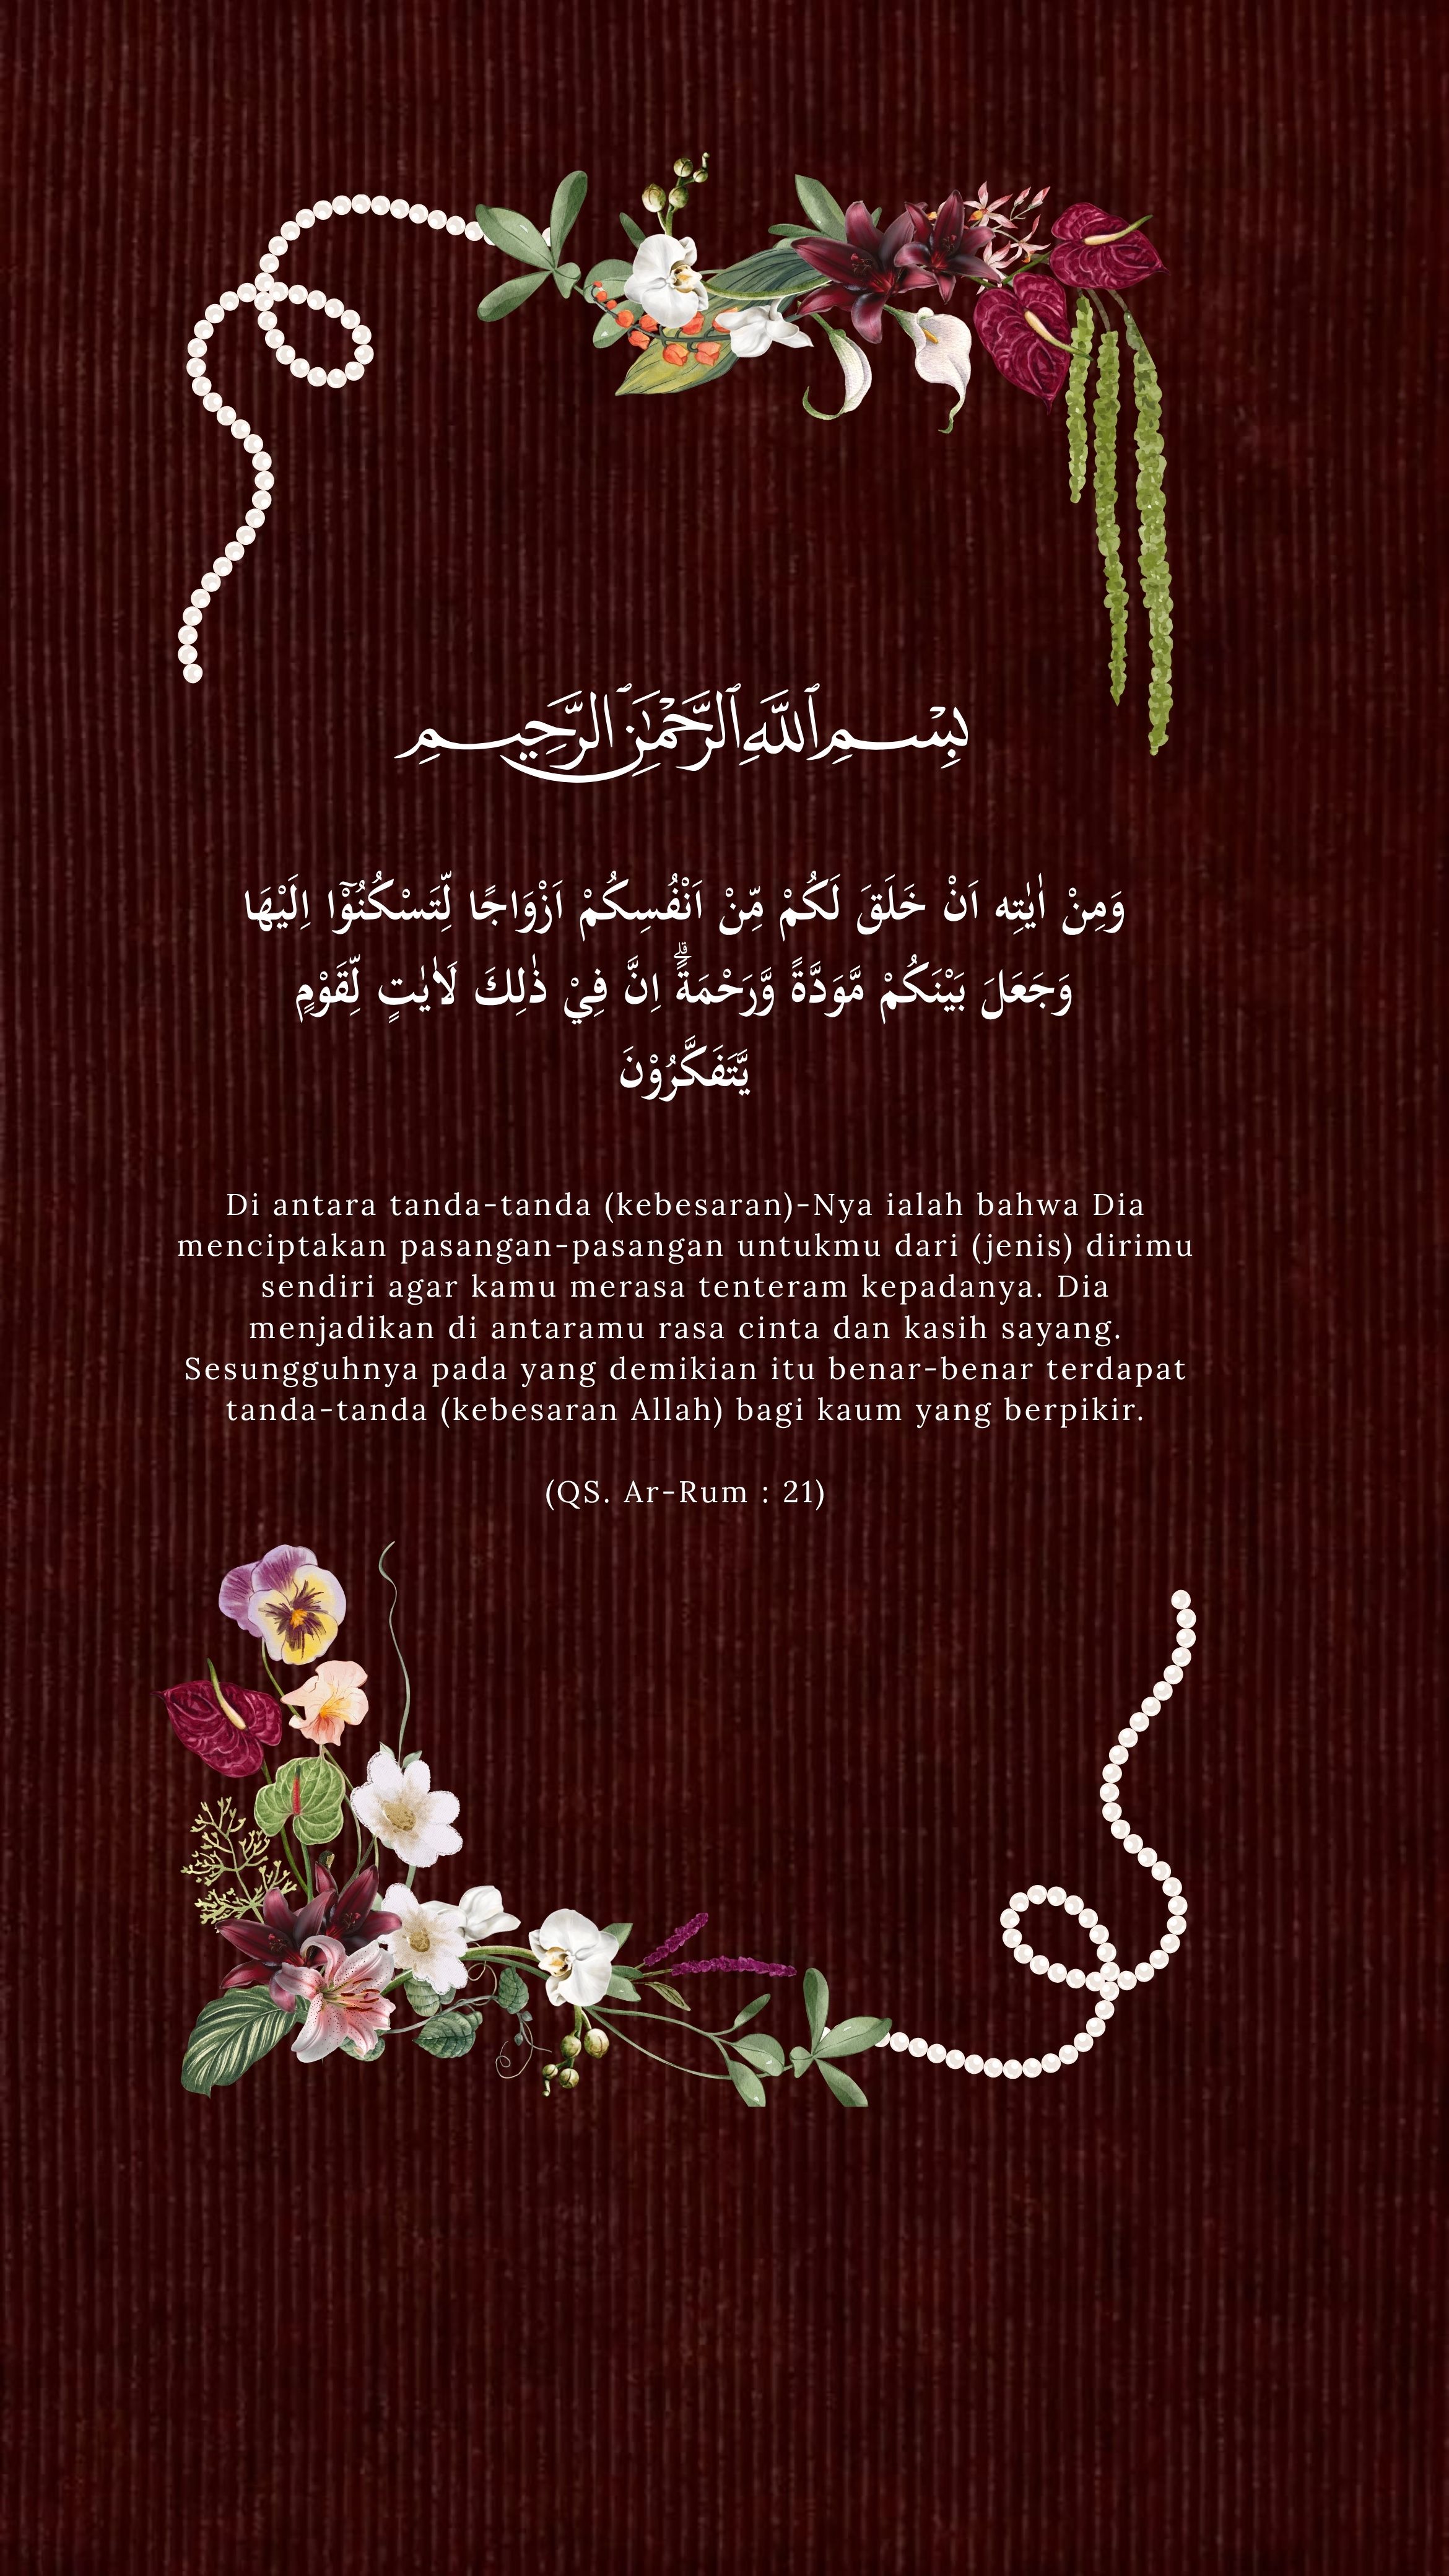 بِسْمِ ٱللَّهِ ٱلرَّحْمَٰنِ ٱلرَّحِيمِ
وَمِنْ اٰيٰتِه اَنْ خَلَقَ لَكُمْ مِّنْ اَنْفُسِكُمْ اَزْوَاجًا لِّتَسْكُنُوْٓا اِلَيْهَا
وَجَعَلَ بَيْنَكُمْ مَّوَدَّةً وَّرَحْمَةًۗ اِنَّ فِيْ ذٰلِكَ لَاٰيٰتٍ لِّقَوْمٍ
يَّتَفَكَّرُوْنَ
Di antara tanda-tanda (kebesaran)-Nya ialah bahwa Dia
menciptakan pasangan-pasangan untukmu dari (jenis) dirimu
sendiri agar kamu merasa tenteram kepadanya. Dia
menjadikan di antaramu rasa cinta dan kasih sayang.
Sesungguhnya pada yang demikian itu benar-benar terdapat
tanda-tanda (kebesaran Allah) bagi kaum yang berpikir.
(QS. Ar-Rum : 21)